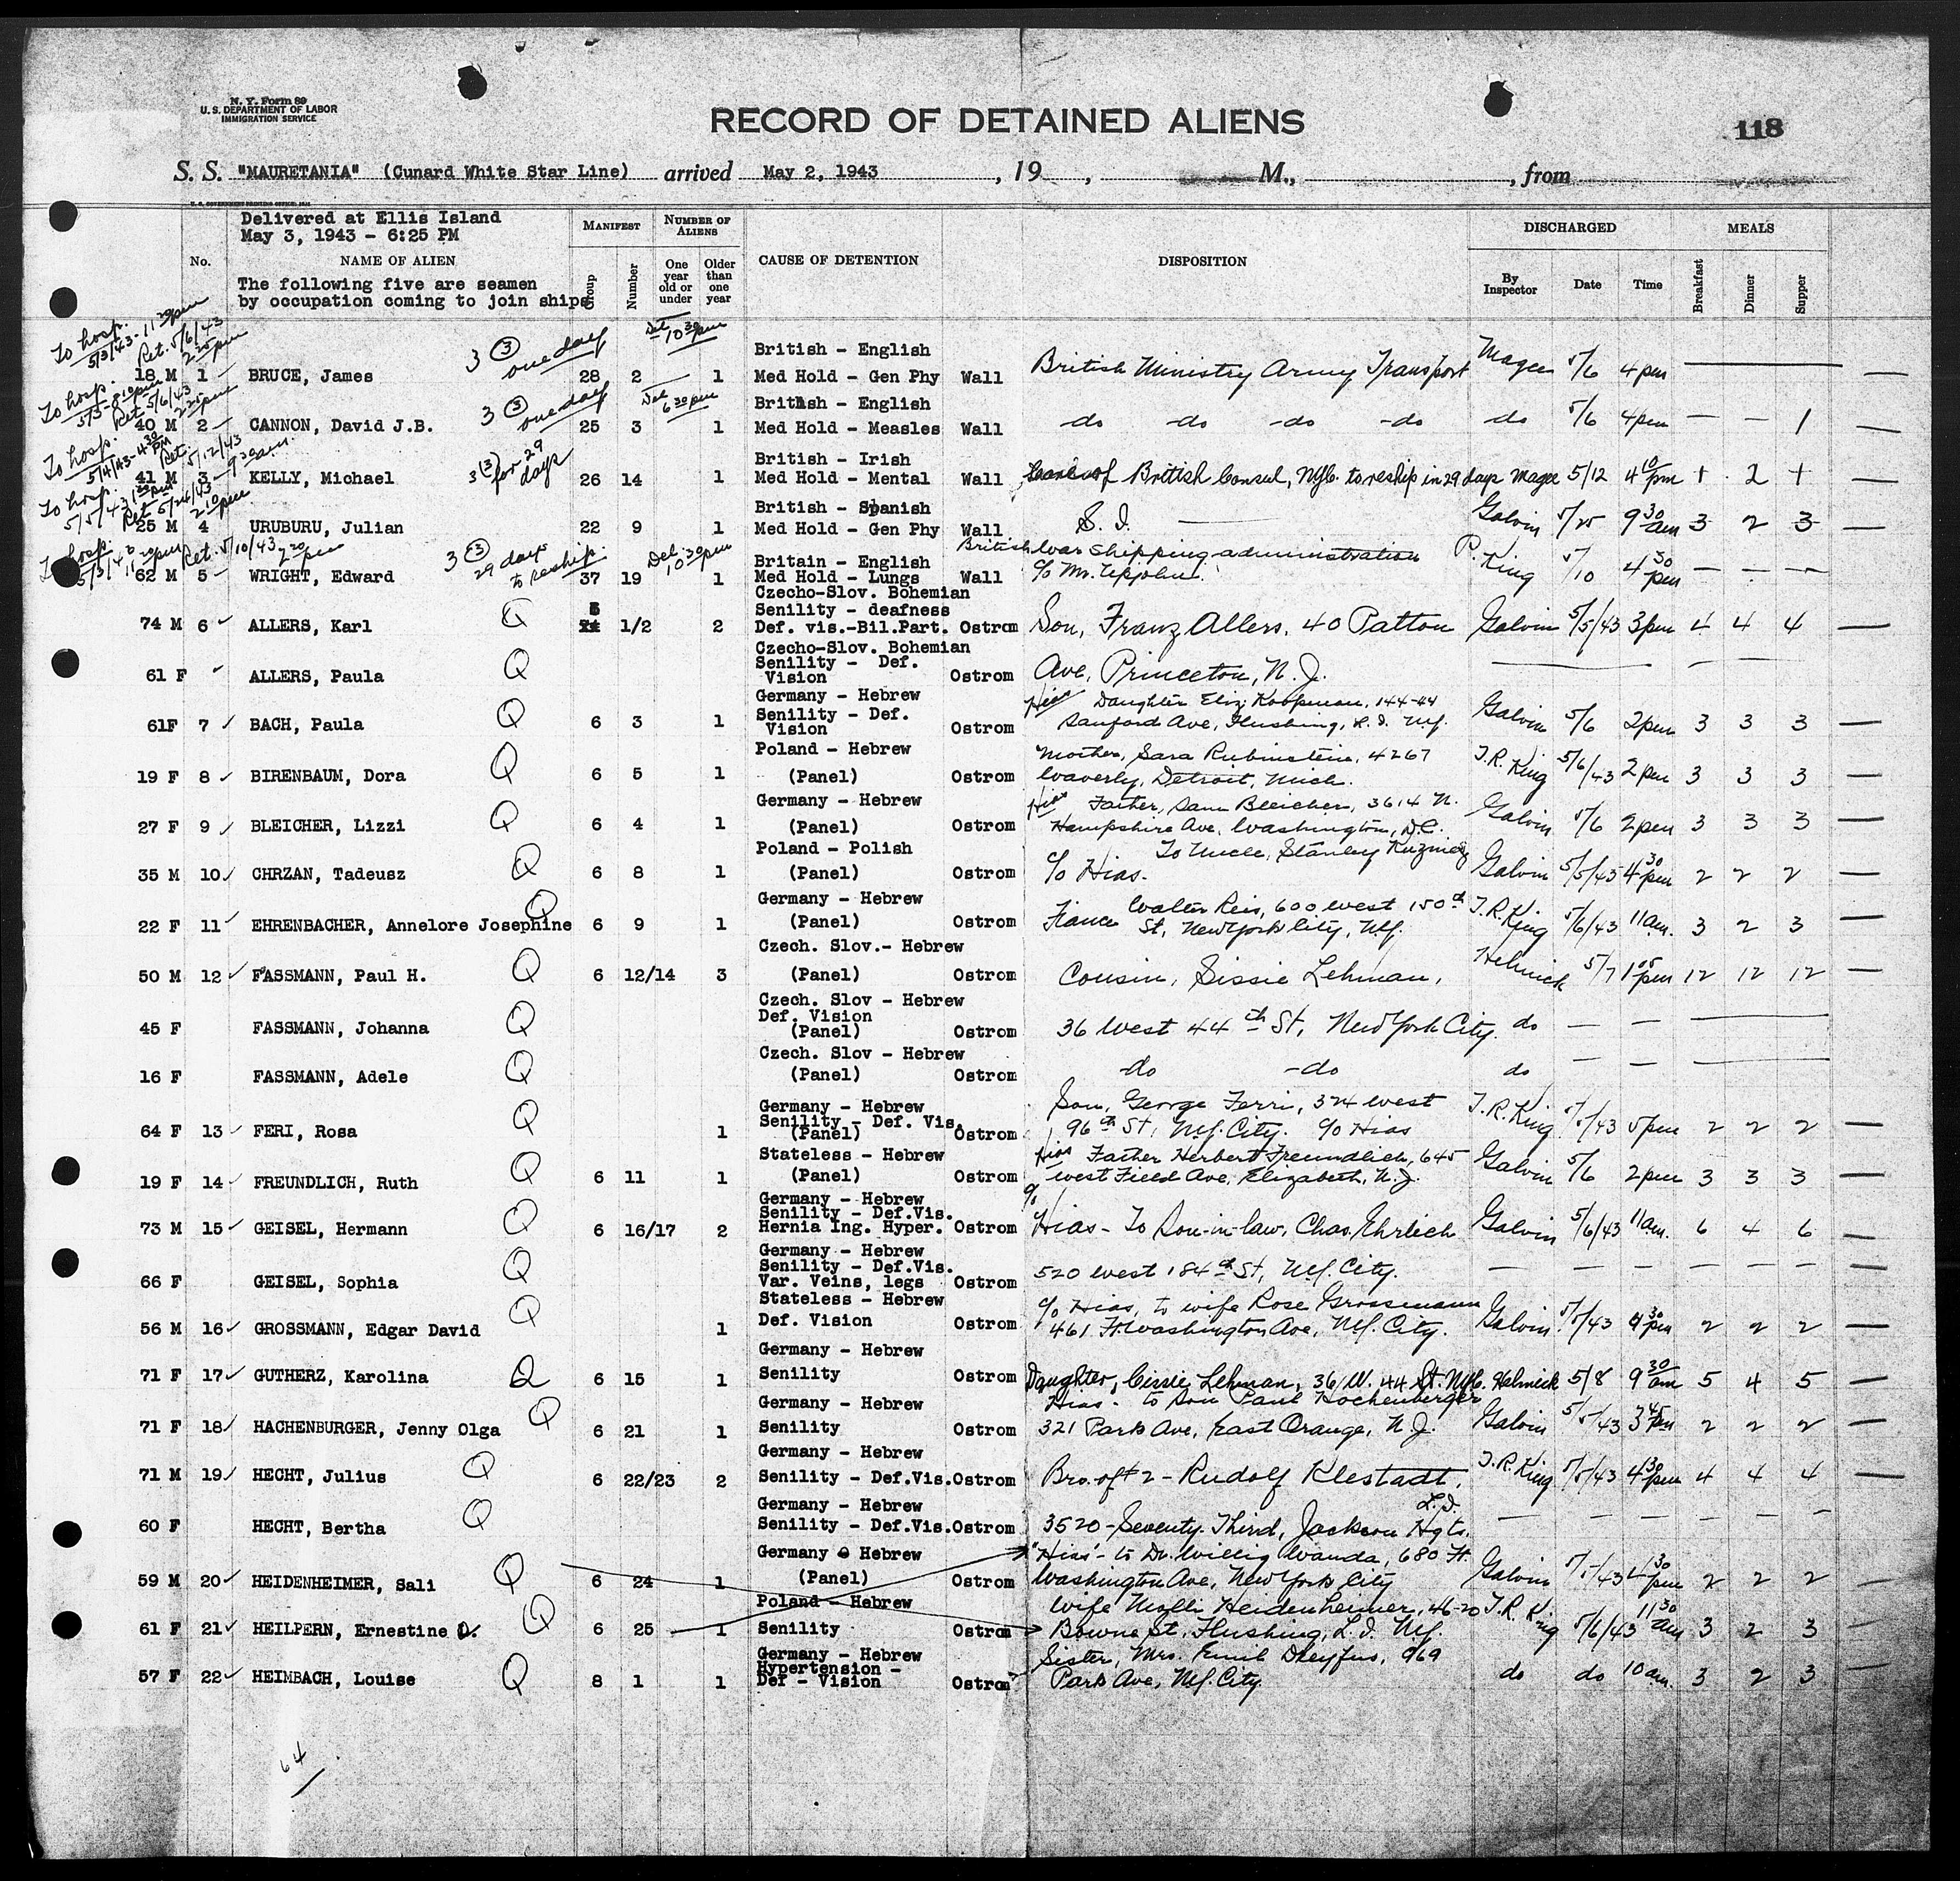 N. Y. Form 89
U. S. DEPARTMENT OF LABOR
IMMIGRATION SERVICE
RECORD OF DETAINED ALIENS
118
S. S. "MAURETANIA" (Cunard White Star Line) arrived May 2, 1943 , 19 , M., , from
U. S. GOVERNMENT PRINTING OFFICE
Delivered at Ellis Island
May 3, 1943 - 6:25 PM
No. NAME OF ALIEN
The following five are seamen
by occupation coming to join ships
MANIFEST Group Number
NUMBER OF ALIENS One year old or under Older than one year
CAUSE OF DETENTION DISPOSITION
DISCHARGED By Inspector Date Time
MEALS Breakfast Dinner Supper
To hosp. 5/3/43 - 11 30 pm Ret. 5/6/43 2 25 pm
3 (3) one day Del 10 30 pm
British - English
18 M 1 BRUCE, James 28 2 1 Med Hold - Gen Phy Wall British Ministry Army Transport Magee 5/6 4 pm
To hosp. Ret 5/6/43 2 25 pm
3 (3) one day Del 6 30 pm
British - English
40 M 2 CANNON, David J.B. 25 3 1 Med Hold - Measles Wall -do -do -do -do do 5/6 4pm - - 1
To hosp. 5/4/43 - 4 30 PM Ret. 5/12/43 9 30 am.
3 (3) for 29 days
British - Irish
41 M 3 KELLY, Michael 26 14 1 Med Hold - Mental Wall of British Consul, NYC. to reship in 29 days Magee 5/12 4 10 pm 1 2 1
To hosp. 5/5/43 1 30 pm Ret 5/24/43 2 10 pm
British - Spanish
25 M 4 URUBURU, Julian 22 9 1 Med Hold - Gen Phy Wall S. I. Galvin 5/25 9 30 am 3 2 3
To hosp. 5/3/43 11 20 pm Ret. 5/10/43 2 20 pm
3 (3) 29 days to reship. Del. 10 30 pm
Britain - English British War Shipping administration
62 M 5 WRIGHT, Edward 37 19 1 Med Hold - Lungs Wall c/o Mr. Upjohn. P. King 5/10 4 30 pm - - -
Czecho-Slov. Bohemian
Senility - deafness
74 M 6 ALLERS, Karl Q 5 1/2 2 Def. vis.-Bil.Part. Ostrom Son, Franz Allers, 40 Patton Galvin 5/5/43 3pm 4 4 4
Czecho-Slov. Bohemian
Senility - Def.
61 F ALLERS, Paula Q Vision Ostrom Ave, Princeton, N. J.
Germany - Hebrew Hias Daughter Eliz Koopman, 144-44
61F 7 BACH, Paula Q 6 3 1 Senility - Def. Vision Ostrom Sanford Ave, Flushing, L. I. N.Y. Galvin 5/6 2pm 3 3 3
Poland - Hebrew Mother, Sara Rubinstein, 4267
19 F 8 BIRENBAUM, Dora Q 6 5 1 (Panel) Ostrom Waverly, Detroit, Mich. T.R. King 5/6/43 2pm 3 3 3
Germany - Hebrew Hias Father, Sam Bleicher, 3614 N.
27 F 9 BLEICHER, Lizzi Q 6 4 1 (Panel) Ostrom Hampshire Ave, Washington, D.C. Galvin 5/6 2pm 3 3 3
Poland - Polish To Uncle, Stanley
35 M 10 CHRZAN, Tadeusz Q 6 8 1 (Panel) Ostrom c/o Hias. Galvin 5/5/43 4 30 pm 2 2 2
Germany - Hebrew Walter Reis, 600 West 150th
22 F 11 EHRENBACHER, Annelore Josephine Q 6 9 1 (Panel) Ostrom Fiance St, New York City, N.Y. T.R. King 5/6/43 11am. 3 2 3
Czech. Slov.- Hebrew
50 M 12 FASSMANN, Paul H. Q 6 12/14 3 (Panel) Ostrom Cousin, Sissie Lehman, Helmick 5/7 1 05 pm 12 12 12
Czech. Slov - Hebrew
Def. Vision
45 F FASSMANN, Johanna Q (Panel) Ostrom 36 West 44th St, New York City. do
Czech. Slov - Hebrew
16 F FASSMANN, Adele Q (Panel) Ostrom -do -do do
Germany - Hebrew Son, George Ferri, 324 West
Senility - Def. Vis.
64 F 13 FERI, Rosa Q 1 (Panel) Ostrom 96th St, N.Y. City. c/o Hias T.R. King 5/5/43 5pm 2 2 2
Stateless - Hebrew Hias Father Herbert Freundlich, 645
19 F 14 FREUNDLICH, Ruth Q 6 11 1 (Panel) Ostrom West Field Ave, Elizabeth, N.J. Galvin 5/6 2pm 3 3 3
Germany - Hebrew
Senility - Def.Vis.
73 M 15 GEISEL, Hermann Q 6 16/17 2 Hernia Ing. Hyper. Ostrom c/o Hias - To Son-in-law, Chas. Ehrlich Galvin 5/6/43 11am. 6 4 6
Germany - Hebrew
Senility - Def.Vis.
66 F GEISEL, Sophia Q Var. Veins, legs Ostrom 520 West 184th St, N.Y. City.
Stateless - Hebrew c/o Hias, to wife Rose Grossmann
56 M 16 GROSSMANN, Edgar David Q 1 Def. Vision Ostrom 461 Ft. Washington Ave, N.Y. City. Galvin 5/5/43 4 30 pm 2 2 2
Germany - Hebrew
71 F 17 GUTHERZ, Karolina Q 6 15 1 Senility Ostrom Daughter, Cissie Lehman, 36 W. 44 St. NYC. Helmick 5/8 9 30 am 5 4 5
Germany - Hebrew Hias - to Son Paul Hochenberger
71 F 18 HACHENBURGER, Jenny Olga Q 6 21 1 Senility Ostrom 321 Park Ave, East Orange, N.J. Galvin 5/5/43 3 45 pm 2 2 2
Germany - Hebrew
71 M 19 HECHT, Julius Q 6 22/23 2 Senility - Def.Vis. Ostrom Bro. of #2 - Rudolf Klestadt, T.R. King 5/5/43 4 30 pm 4 4 4
Germany - Hebrew L.I.
60 F HECHT, Bertha Q Senility - Def.Vis. Ostrom 3520 - Seventy Third, Jackson Hgts.
Germany - Hebrew "Hias" - to Dr. Willig Wanda, 680 Ft.
59 M 20 HEIDENHEIMER, Sali Q 6 24 1 (Panel) Ostrom Washington Ave, New York City Galvin 5/5/43 4 30 pm 2 2 2
Poland - Hebrew Wife Molli Heidenheimer, 46-20
61 F 21 HEILPERN, Ernestine D. Q 6 25 1 Senility Ostrom Bowne St, Flushing, L.I. N.Y. T.R. King 5/6/43 11 30 am 3 2 3
Germany - Hebrew Sister, Mrs. Emil Dreyfus, 969
Hypertension -
57 F 22 HEIMBACH, Louise Q 8 1 1 Def - Vision Ostrom Park Ave, N.Y. City. do do 10 am. 3 2 3
64